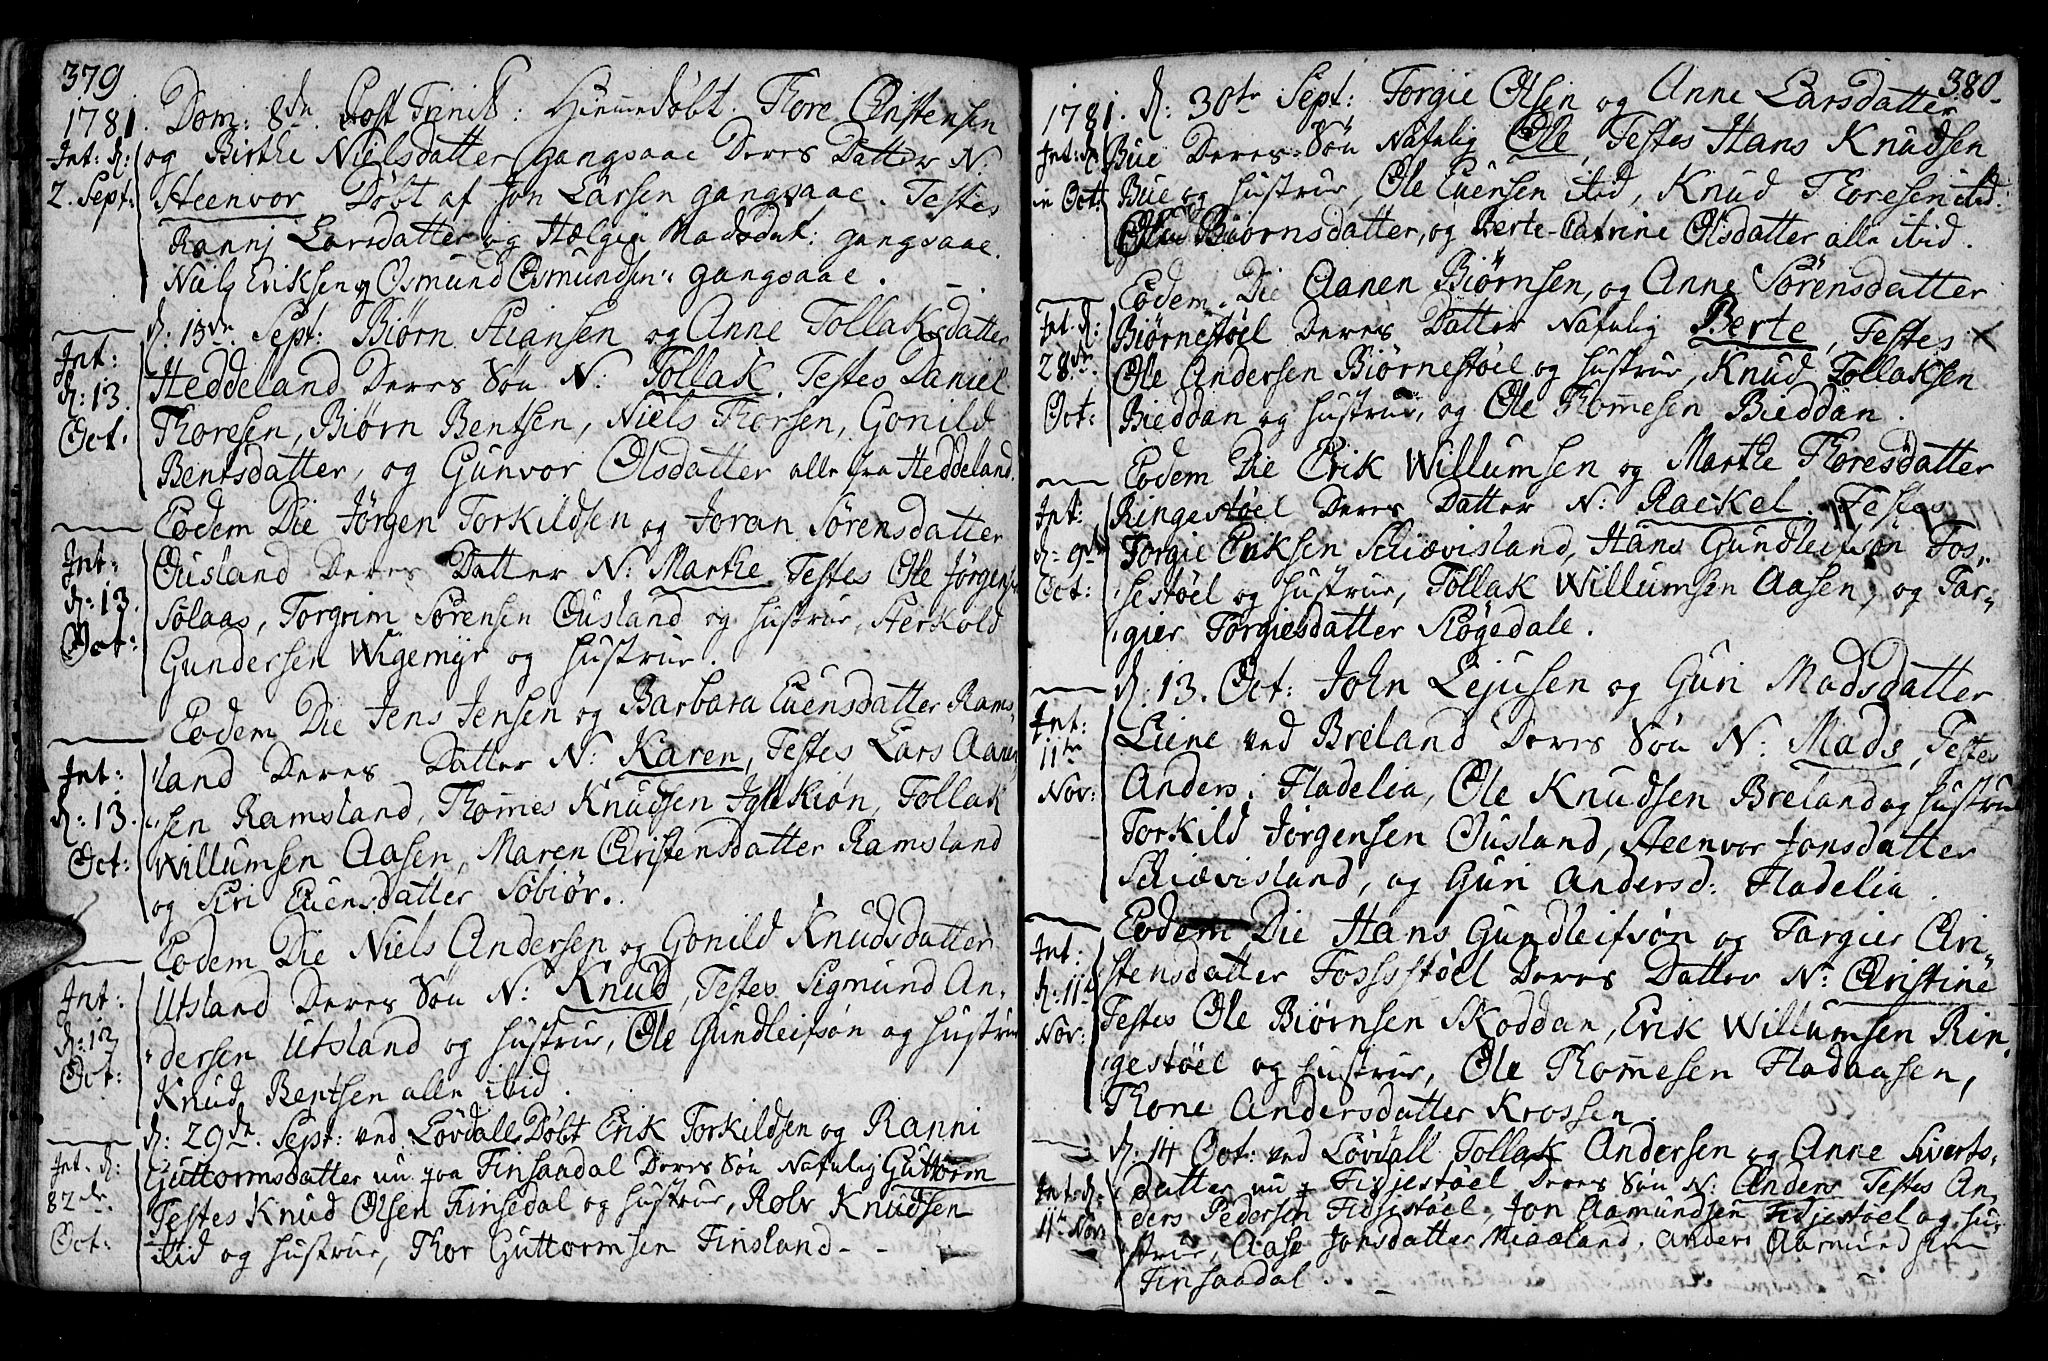 379
1781. Dom: 8de Post Trinit: Hiemmedøbt. Thore Christensen
Int: d: og Birthe Nielsdatter gangsaae Deres Datter N:
2. Sept: Steenvor Døbt af Jon Larsen gangsaae. Testes
Rannj Larsdatter og Hælgie Madsdat: gangsaae.
Niels Eriksen og Osmund Osmundsen: gangsaae.
d: 15de Sept: Biørn Stiansen og Anne Tollaksdatter
Int: Heddeland Deres Søn N: Tollak Testes Daniel
d: 13. Thoresen, Biørn Bentsen, Niels Thorsen, Gonild
Oct: Bentsdatter, og Gunvor Olsdatter alle fra Heddeland.
Eodem Die Jørgen Torkildsen og Joran Sørensdatter
Int: Ousland Deres Datter N: Marthe Testes Ole Jørgens
d: 13. Solaas, Torgrim Sørensen Ousland og hustrue, Sterkold
Oct: Gundersen Wigemyr og hustrue.
Eodem Die Jens Jensen og Barbara Euensdatter Rams-
Int: land Deres Datter N: Karen, Testes Lars Aanen
d: 13. sen Ramsland, Thommes Knudsen Tollak
Oct: Willumsen Aasen, Maren Christensdatter Ramsland
og Siri Euensdatter Søbiør.
Eodem Die Niels Andersen og Gonild Knudsdatter
Int: Utsland Deres Søn N: Knud, Testes Sigmund An-
d: 12 dersen Utsland og hustrue, Ole Gundleifsøn og hustrue
Oct: Knud Bentsen alle ibid.
d: 29de Sept: ved Løvdall Døbt Erik Torkildsen og Ranni
Int. d: Guttormsdatter nu paa Finsaadal Deres Søn Nafnlig Guttorm
82de Testes Knud Olsen Finsedal og hustrue, Rolv Knudsen
Oct: ibid og hustrue, Thor Guttormsen Finsland - -
380.
1781. d: 30te Sept: Torgie Olsen og Anne Larsdatter
Int: d: Bue Deres Søn Nafnlig Ole, Testes Hans Knudsen
in Oct: Bue og hustrue, Ole Euensen ibid, Knud Thoresen ibid:
Biørnsdatter, og Berte-Catrine Olsdatter alle ibid.
Eodem Die Aanen Biørnsen, og Anne Sørensdatter
Int. d: Biørnestøel Deres Datter Nafnlig Berte, Testes
28de Ole Andersen Biørnestøel og hustrue, Knud Tollaksen
Oct: Bieddan og hustrue, og Ole Thommesen Bieddan.
Eodem Die Erik Willumsen og Marthe Thoresdatter
Int: Ringestøel Deres Datter N: Rackel. Testes
d: 9de Torgie Eriksen Schiævisland, Hans Gundleifsøn Fos-
Oct: sestøel og hustrue, Tollak Willumsen Aasen, og Tar-
gier Torgiesdatter Skøgedale.
d: 13. Oct: John Lejusen og Guri Madsdatter
Int: Liene ved Breland Deres Søn N: Mads, Testes
11te Anders i Fladelia, Ole Knudsen Breland og hustrue
Nov: Torkild Jørgensen Ousland, Steenvor Jonsdatter
Schiævisland, og Guri Andersd: Fladelia.
Eodem Die Hans Gundleifsøn og Targier Chri-
Int: stensdatter Fossestøel Deres Datter N: Christine
d: 11te Testes Ole Biørnsen Skoddan, Erik Willumsen Rin-
Nov: gestøel og hustrue, Ole Thommesen Fladaasen,
Thone Andersdatter Krossen.
d: 14 Oct: ved Løvdall Tollak Andersen og Anne Siverts-
Int: d: datter nu Fidjestøel Deres Søn N: Anders Testes An-
11te Nov: ders Pedersen Fidjestøel, Jon Aamundsen Fidjestøel og hu-
strue, Aase Jonsdatter Miaaland. Anders Aasmundsen
Finsaadal.